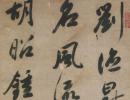 劉德昇
名風流
胡昭鍾